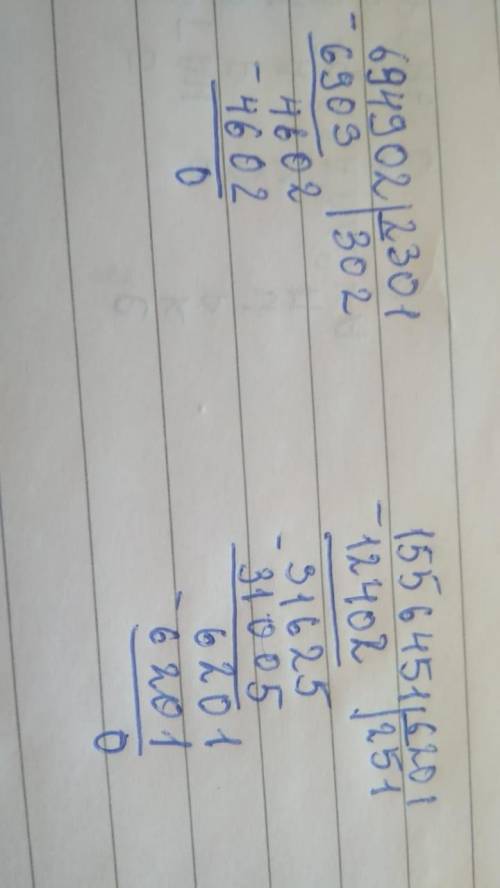 694902 | 2301
- 6903 | 302
4602
- 4602
0
1556451 | 6201
- 12402 | 251
31625
- 31005
6201
- 6201
0